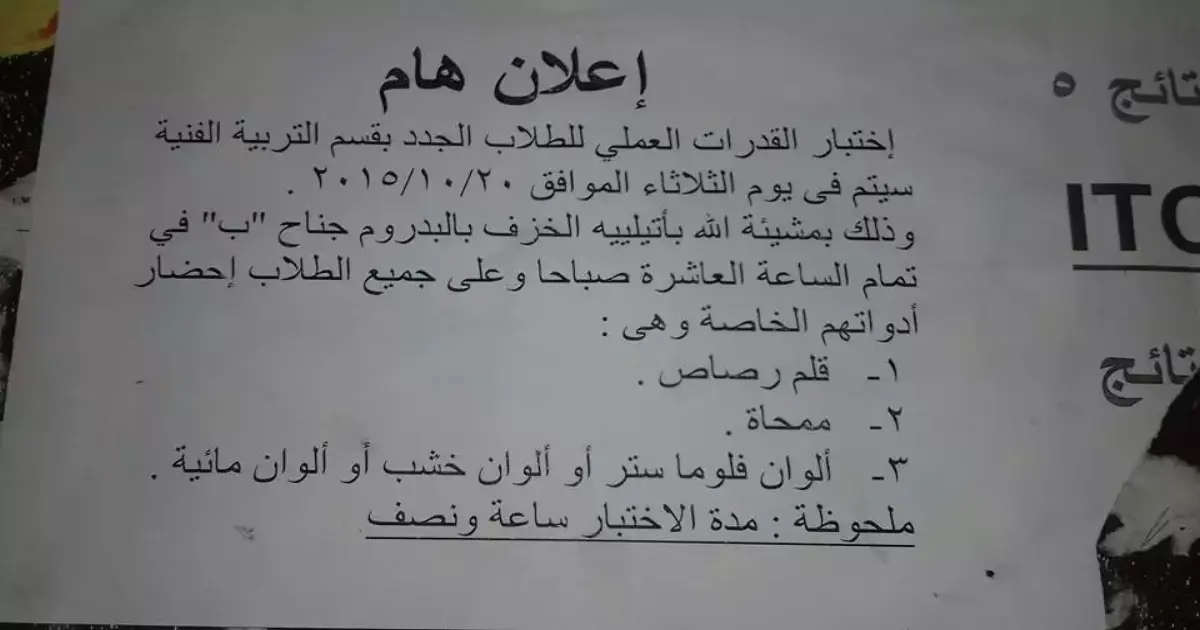 إعلان هام
إختبار القدرات العملي للطلاب الجدد بقسم التربية الفنية
سيتم فى يوم الثلاثاء الموافق ٢٠١٥/١٠/٢٠ .
وذلك بمشيئة الله بأتيلييه الخزف بالبدروم جناح "ب" في
تمام الساعة العاشرة صباحا وعلى جميع الطلاب إحضار
أدواتهم الخاصة وهى :
١- قلم رصاص .
٢- ممحاة .
٣- ألوان فلوما ستر أو ألوان خشب أو ألوان مائية .
ملحوظة : مدة الاختبار ساعة ونصف
تائج ٥
ITC
تائج